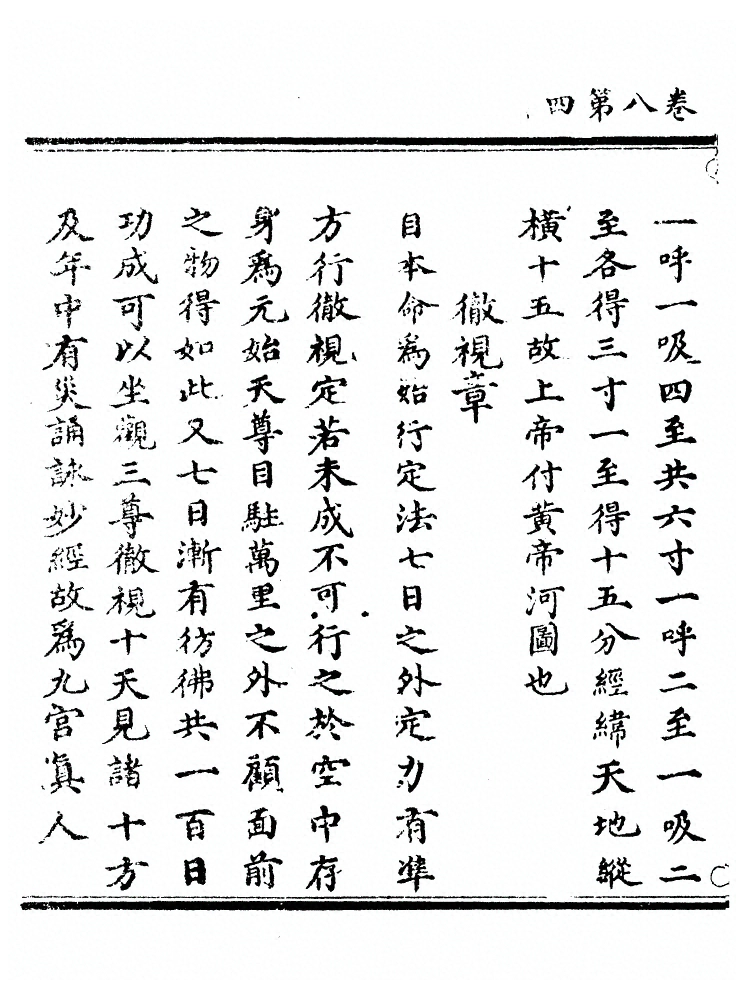 卷八第四
一呼一吸四至共六寸一呼二至一吸二
至各得三寸一至得十五分經緯天地縱
橫十五故上帝付黄帝河圖也
徹視章
目本命為始行定法七日之外定力有準
方行徹視定若未成不可行之於空中存
身爲元始天尊目駐萬里之外不顧面前
之物得如此又七日漸有彷彿共一百日
功成可以坐觀三尊徹視十天見諸十方
及年中有災誦詠妙經故爲九宮真人